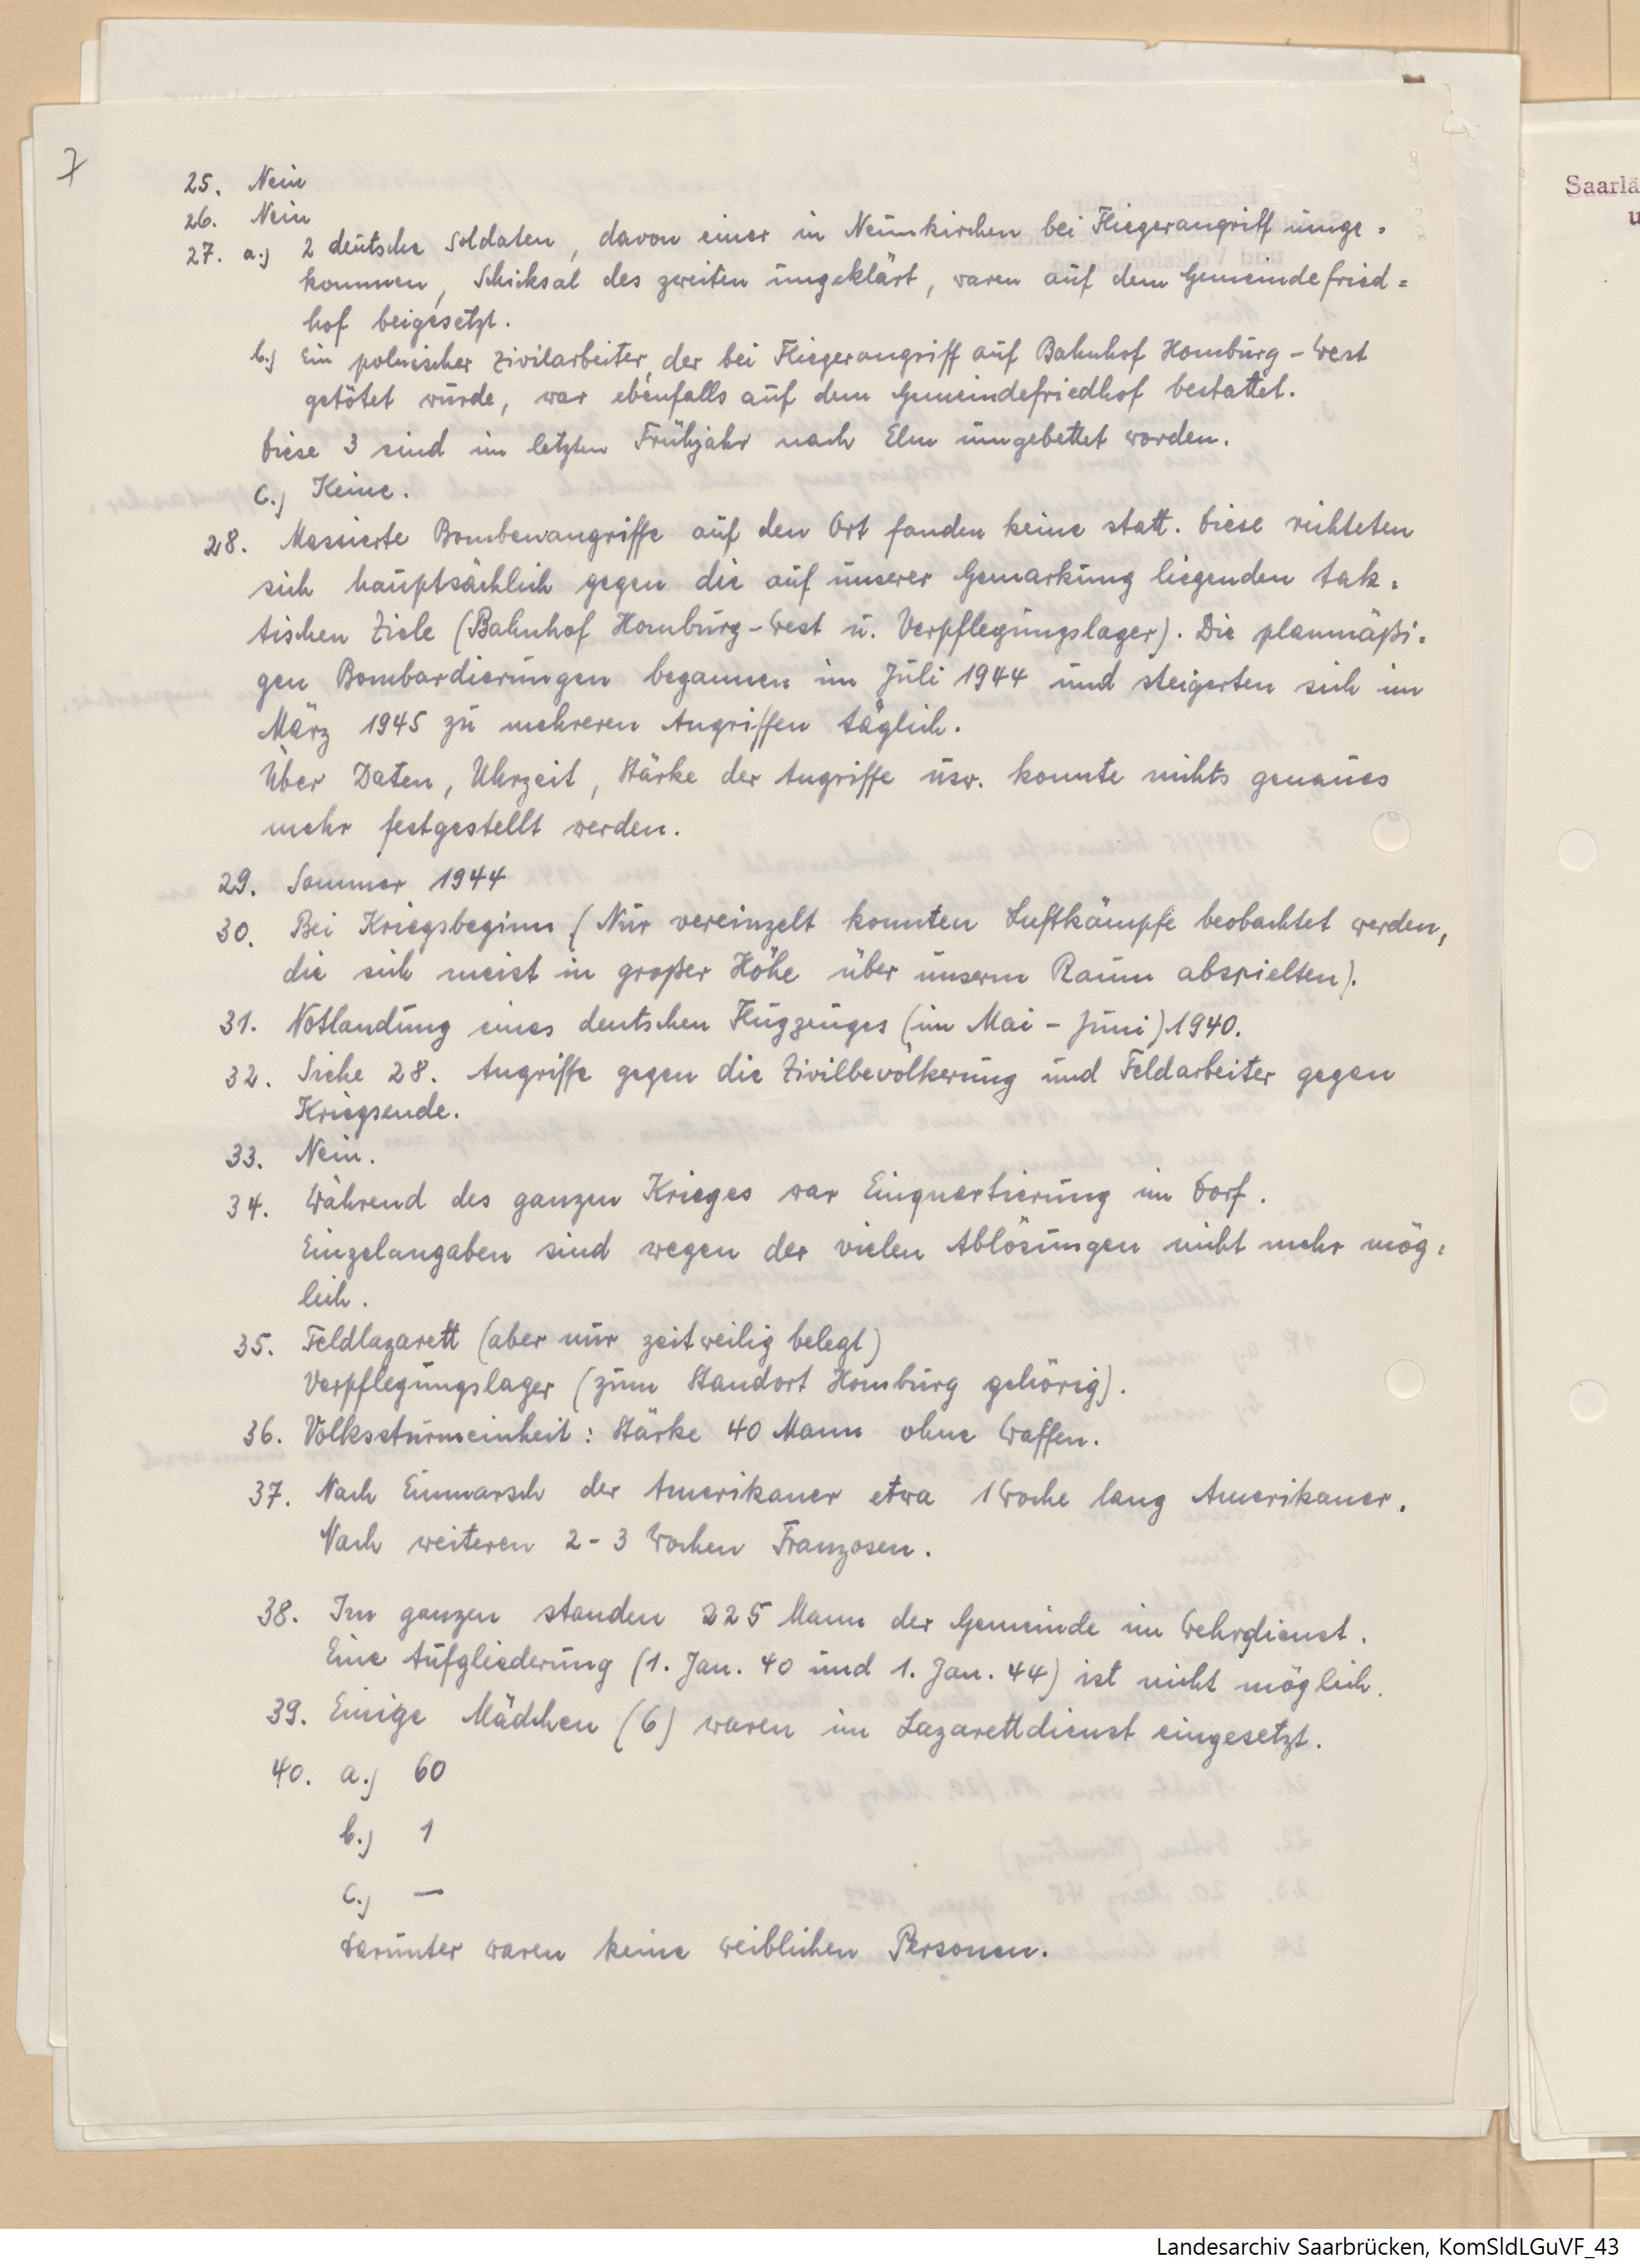 7
25. Nein
26. Nein
27. a.) 2 deutsche Soldaten, davon einer in Neunkirchen bei Fliegerangriff umge=
kommen, Schicksal des zweiten ungeklärt, waren auf dem Gemeindefried=
hof beigesetzt.
b.) Ein polnischer Zivilarbeiter, der bei Fliegerangriff auf Bahnhof Homburg-West
getötet wurde, war ebenfalls auf dem Gemeindefriedhof bestattet.
Diese 3 sind im letzten Frühjahr nach Elm umgebettet worden.
c.) Keine.
28. Massierte Bombenangriffe auf den Ort fanden keine statt. Diese richteten
sich hauptsächlich gegen die auf unserer Gemarkung liegenden tak=
tischen Ziele (Bahnhof Homburg-West u. Verpflegungslager). Die planmäßi=
gen Bombardierungen begannen im Juli 1944 und steigerten sich im
März 1945 zu mehreren Angriffen täglich.
Über Daten, Uhrzeit, Stärke der Angriffe usw. konnte nichts genaues
mehr festgestellt werden.
29. Sommer 1944
30. Bei Kriegsbeginn (Nur vereinzelt konnten Luftkämpfe beobachtet werden,
die sich meist in großer Höhe über unserm Raum abspielten).
31. Notlandung eines deutschen Flugzeuges (im Mai - Juni) 1940.
32. Siehe 28. Angriffe gegen die Zivilbevölkerung und Feldarbeiter gegen
Kriegsende.
33. Nein.
34. Während des ganzen Krieges war Einquartierung im Dorf.
Einzelangaben sind wegen der vielen Ablösungen nicht mehr mög=
lich.
35. Feldlazarett (aber nur zeitweilig belegt)
Verpflegungslager (zum Standort Homburg gehörig).
36. Volkssturmeinheit: Stärke 40 Mann ohne Waffen.
37. Nach Einmarsch der Amerikaner etwa 1 Woche lang Amerikaner.
Nach weiteren 2-3 Wochen Franzosen.
38. Im ganzen standen 225 Mann der Gemeinde im Wehrdienst.
Eine Aufgliederung (1. Jan. 40 und 1. Jan. 44) ist nicht möglich.
39. Einige Mädchen (6) waren im Lazarettdienst eingesetzt.
40. a.) 60
b.) 1
c.) —
Darunter waren keine weiblichen Personen.
Saarlä
u
Landesarchiv Saarbrücken, KomSldLGuVF_43